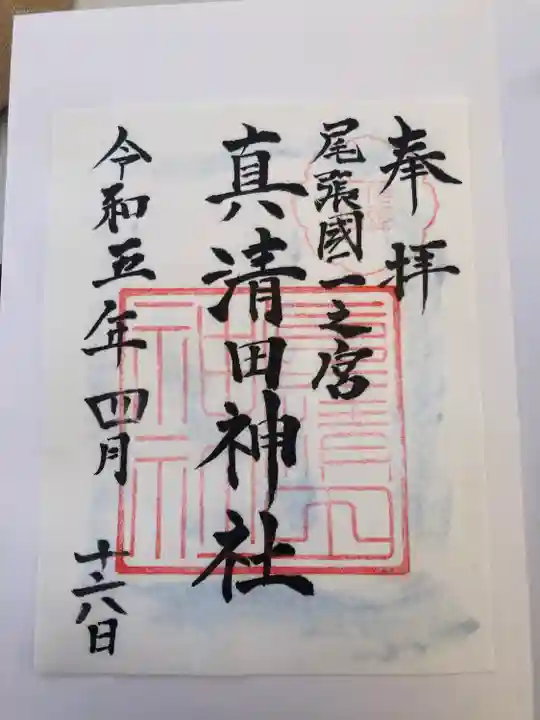 奉拝
尾張國一之宮
真清田神社
令和五年四月
十八日